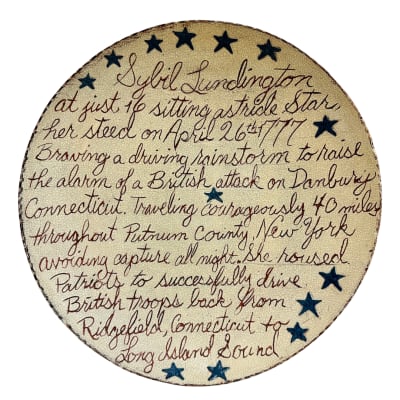 Sybil Lundington
at just 16 sitting astride Star,
her steed on April 26th 1777
Braving a driving rainstorm to raise
the alarm of a British attack on Danbury
Connecticut. Traveling courageously 40 miles
throughout Putnum County, New York
avoiding capture all night. She roused
Patriots to successfully drive
British troops back from
Ridgefield, Connecticut to
Long Island Sound